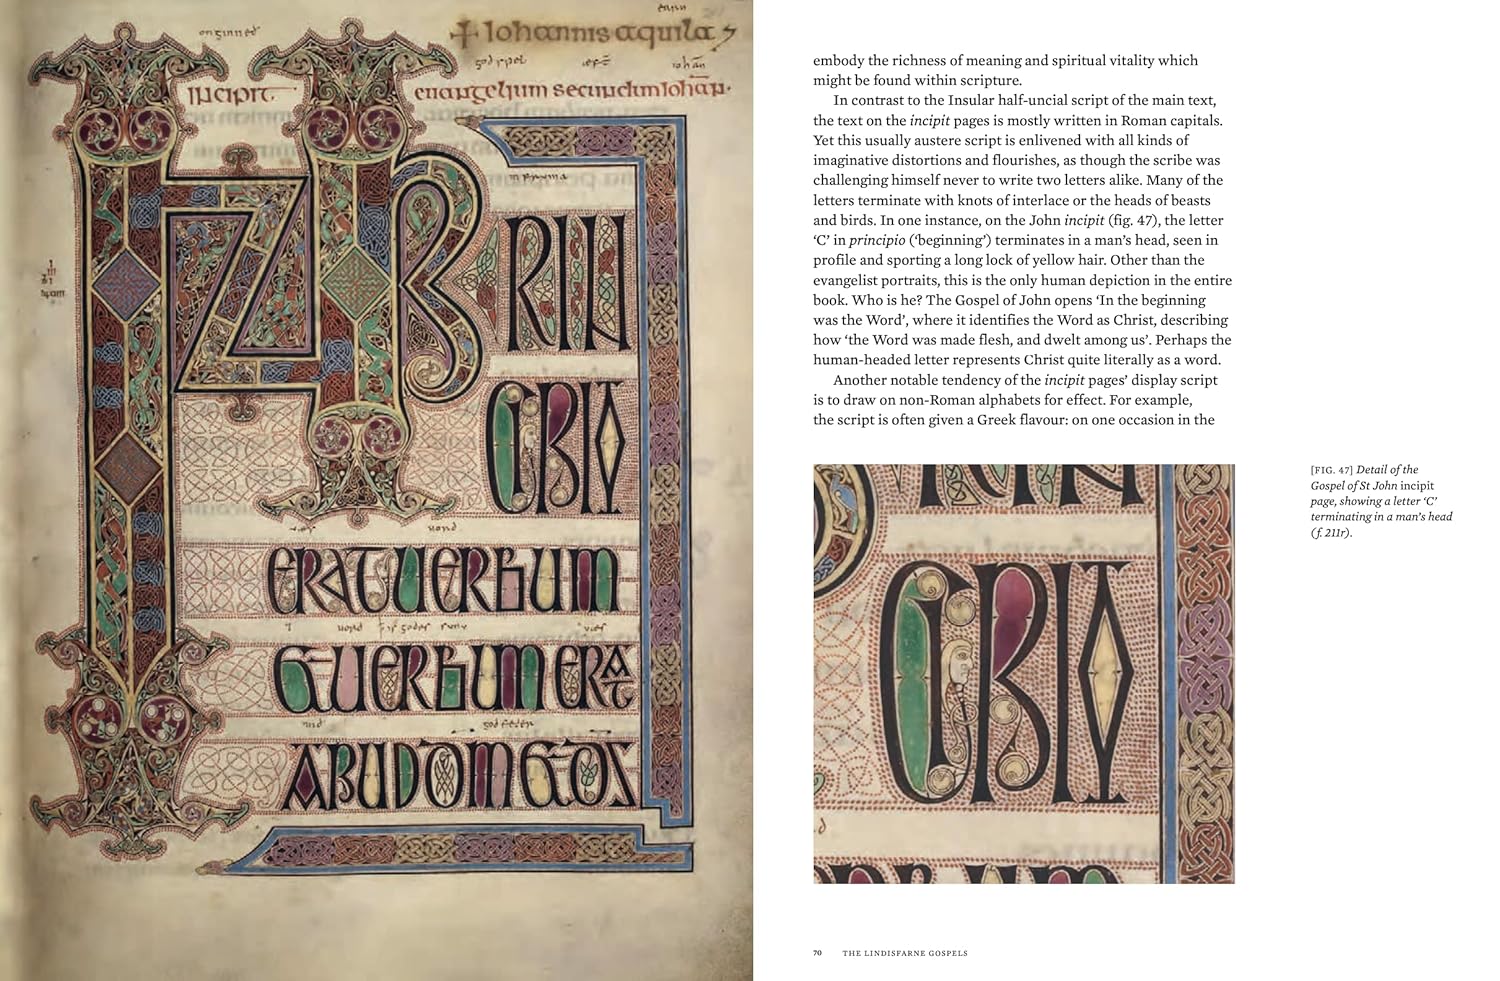 onginneð
+ Iohannis aquila
godspel æft iohan
incipit euangelium secundum iohan
INPRIN
CIPIO
ERATUERBUM
ETUERBUM ERAT
APUDDM ETDS
embody the richness of meaning and spiritual vitality which
might be found within scripture.
In contrast to the Insular half-uncial script of the main text,
the text on the incipit pages is mostly written in Roman capitals.
Yet this usually austere script is enlivened with all kinds of
imaginative distortions and flourishes, as though the scribe was
challenging himself never to write two letters alike. Many of the
letters terminate with knots of interlace or the heads of beasts
and birds. In one instance, on the John incipit (fig. 47), the letter
‘C’ in principio (‘beginning’) terminates in a man’s head, seen in
profile and sporting a long lock of yellow hair. Other than the
evangelist portraits, this is the only human depiction in the entire
book. Who is he? The Gospel of John opens ‘In the beginning
was the Word’, where it identifies the Word as Christ, describing
how ‘the Word was made flesh, and dwelt among us’. Perhaps the
human-headed letter represents Christ quite literally as a word.
Another notable tendency of the incipit pages’ display script
is to draw on non-Roman alphabets for effect. For example,
the script is often given a Greek flavour: on one occasion in the
CIPIO
[FIG. 47] Detail of the
Gospel of St John incipit
page, showing a letter ‘C’
terminating in a man’s head
(f. 211r).
70 THE LINDISFARNE GOSPELS